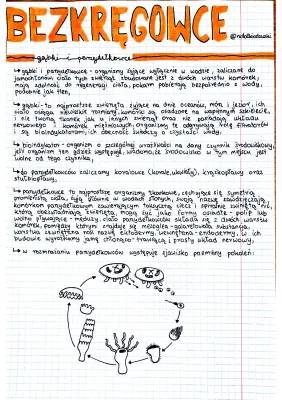 BEZKRĘGOWCE
gąbki i parzydełkowce
↳ gąbki i parzydełkowce - organizmy żyjące wyłącznie w wodzie, zaliczane do
jamochłonów ciało tych zwierząt zbudowane jest z dwóch warstw komórek,
mają zdolność do regeneracji ciała, pokarm pobierają bezpośrednio z wody,
podobnie jak tlen,
↳ gąbki - to najprostsze zwierzęta żyjące na dnie oceanów, mórz i jezior, ich
ciało osiąga niewielkie rozmiary komórki są osadzone na wapiennym szkielecie,
i nie tworzą tkanek jak u innych zwierząt oraz nie posiadają układu
nerwowego i komórek mięśniowych. Organizmy te odgrywają rolę filtratorów
i są bioindykatorem, ich obecność świadczy o czystości wody,
↳ bioindykator - organizm o szczególnej wrażliwości na dany czynnik środowiskowy,
jeśli organizm ten gdzieś występuje, wiadomo, że środowisko w tym miejscu jest
wolne od tego czynnika,
↳ do parzydełkowców zaliczamy koralowce (korale, ukwiały), krążkopławy oraz
stułbiopławy,
↳ parzydełkowce to najprostsze organizmy tkankowe, cechujące się symetrią
promienistą ciała, żyją głównie w wodach słonych, swoją nazwę zawdzięczają
komórkom parzydełkowym zawierającym toksyczną ciecz i spiralnie zwiniętą nić,
którą obezwładniają zwierzęta, mogą żyć jako formy osiadłe - polip lub
wolno pływające - meduzy, ciało parzydełkowców składa się z dwóch warstw
komórek, pomiędzy którymi znajduje się mezoglea - galaretowata substancja,
warstwa zewnętrzna nosi nazwę ektodermy, wewnętrzna - endodermy, w ich
budowie wyróżniamy jamę chłonąco - trawiącą i prosty układ nerwowy,
↳ w rozmnażaniu parzydełkowców występuje zjawisko przemiany pokoleń: